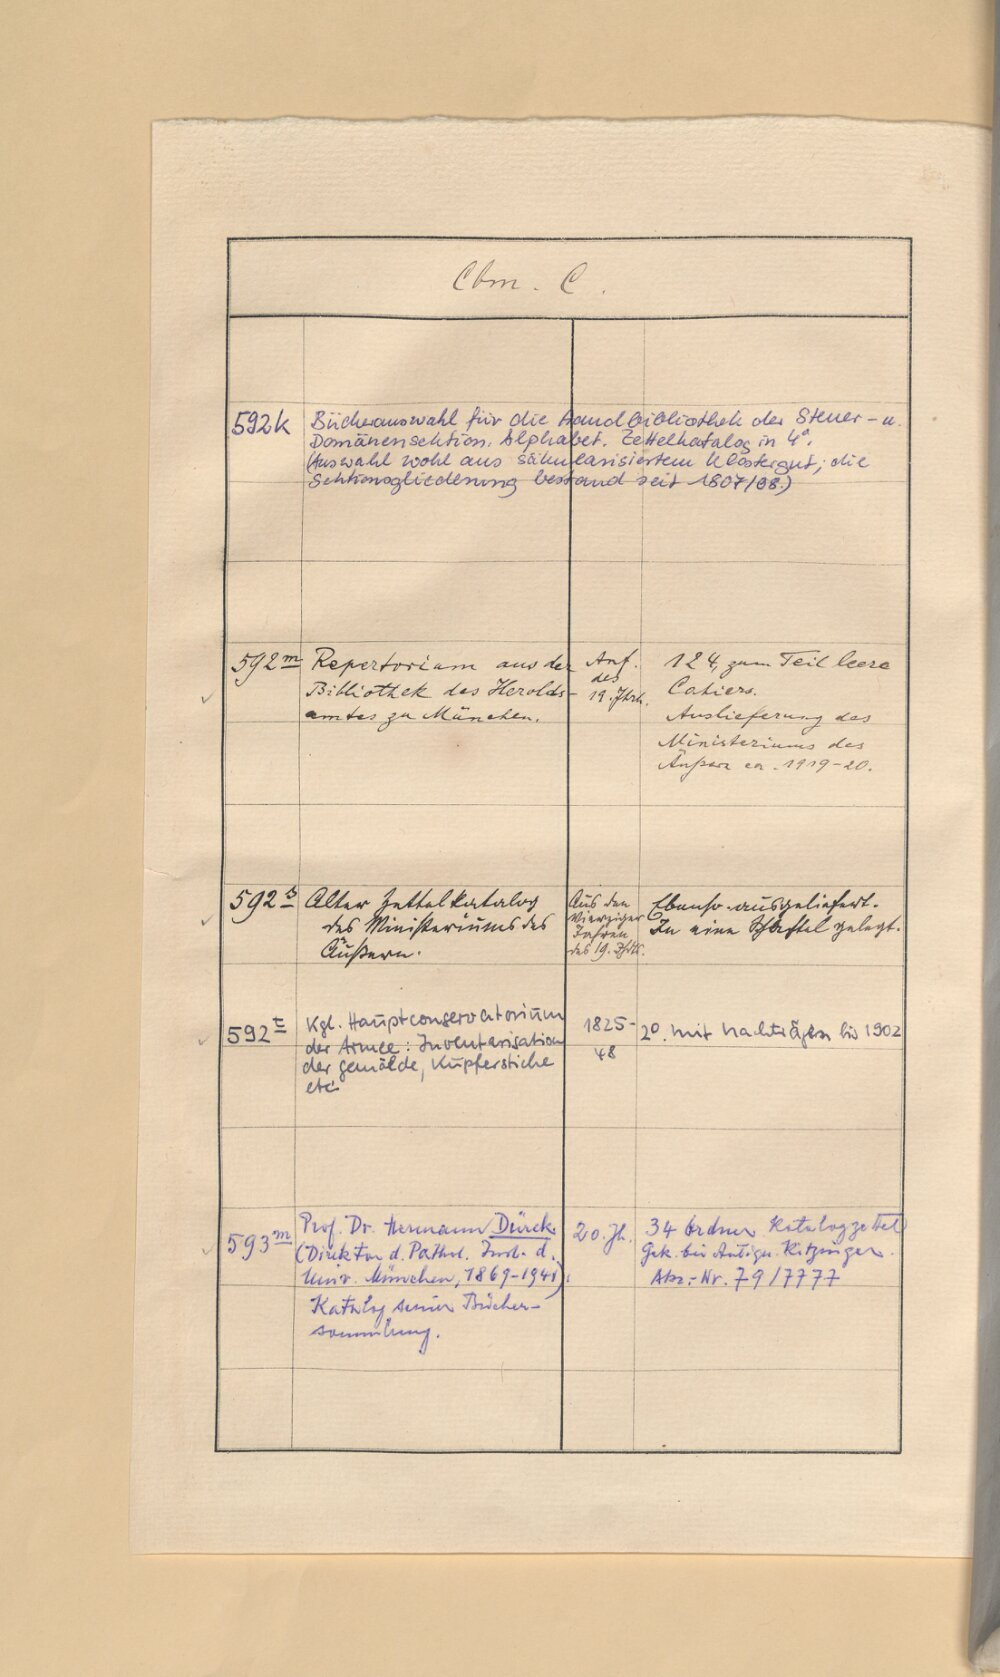 Cbm. C.
592k Bücherauswahl für die Handbibliothek der Steuer- u.
Domänensektion. Alphabet. Zettelkatalog in 4°.
(Auswahl wohl aus säkularisiertem Klostergut; die
Sektionsgliederung bestand seit 1807/08.)
592m Repertorium aus der
Bibliothek des Herolds-
amtes zu München.
Anf.
des
19. Jhrh.
124, zum Teil leere
Cahiers.
Auslieferung des
Ministeriums des
Äußern ca. 1919-20.
592s Alter Zettelkatalog
des Ministeriums des
Äußern.
Aus den
Vierziger
Jahren
des 19. Jhdts.
Ebenso ausgeliefert.
In eine Schachtel gelegt.
592t Kgl. Hauptconservatorium
der Armee: Inventarisation
der Gemälde, Kupferstiche
etc
1825-
48
2°. mit Nachträgen bis 1902
593m Prof. Dr. Hermann Dürck
(Direktor d. Pathol. Inst. d.
Univ. München, 1869-1941):
Katalog seiner Bücher-
sammlung.
20. Jh.
34 Ordner Katalogzettel
Gek. bei Antiqu. Kitzinger.
Akz.-Nr. 79/7777